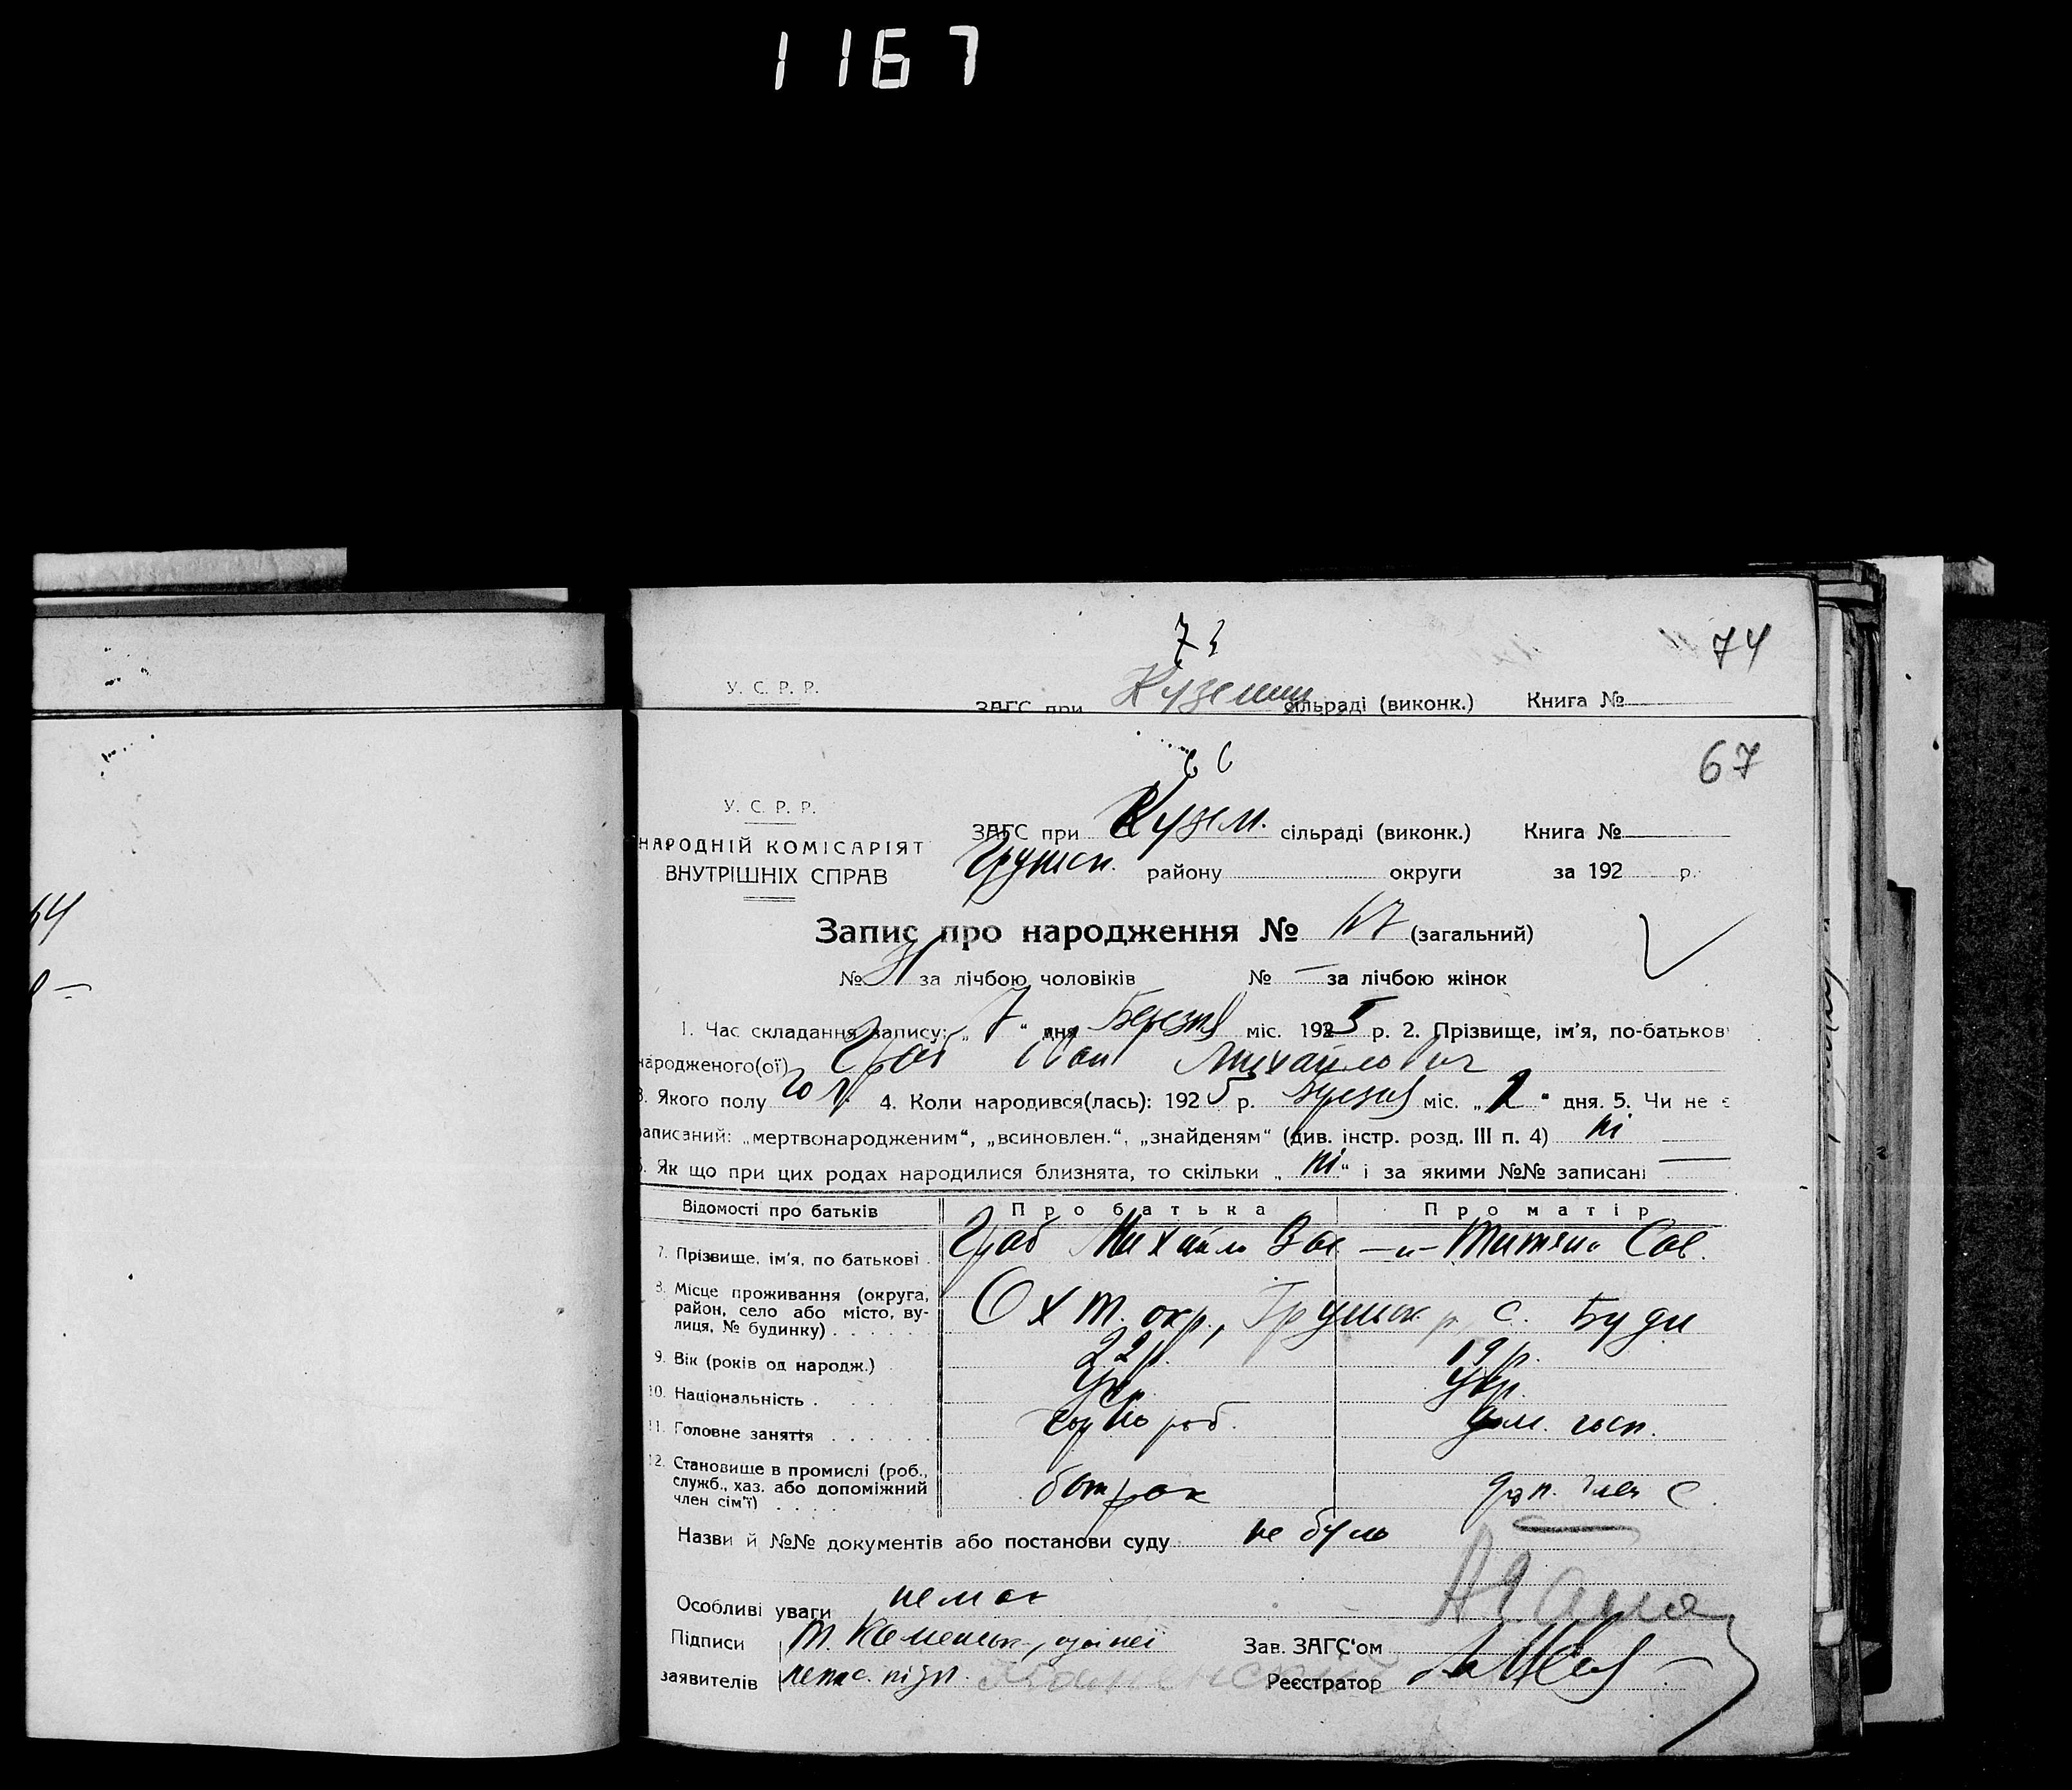 1167
74
У. С. Р. Р.
ЗАГС при Куземин сільраді (виконк.) Книга №
66
67
У. С. Р. Р.
ЗАГС при Кузем. сільраді (виконк.) Книга №
НАРОДНІЙ КОМІСАРІЯТ
ВНУТРІШНІХ СПРАВ
Грунськ. району округи за 192 р.
Запис про народження № (загальний)
№ за лічбою чоловіків № — за лічбою жінок
1. Час складання запису: „ 7 “ дня Березня міс. 1925 р. 2. Прізвище, ім’я, по-батьков
народженого(ої) Граб Іван Михайлович
3. Якого полу чол. 4. Коли народився(лась): 1925 р. Березня міс. „ “ дня. 5. Чи не є
записаний: „мертвонародженим“, „всиновлен.“, „знайденям“ (див. інстр. розд. III п. 4) ні
6. Як що при цих родах народилися близнята, то скільки „ ні “ і за якими №№ записані —
Відомості про батьків Про батька Про матір
7. Прізвище, ім’я, по батькові . Граб Михайло Вас. —„— Сав.
8. Місце проживання (округа, район, село або місто, вулиця, № будинку) . . . . . Охт. окр., Грунськ р, с. Буди
9. Вік (років од народж.) 22 р. 19 р.
10. Національність . . . . . Укр. Укр.
11. Головне заняття . . . . . . чорно роб. дом. госп.
12. Становище в промислі (роб., служб., хаз. або допоміжний член сім’ї) . . . . батрак доп. член с.
Назви й №№ документів або постанови суду не було
Особливі уваги немає
Підписи
Зав. ЗАГС‘ом
заявителів
Реєстратор